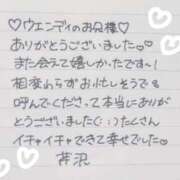 ♡ウエンディのお兄様♡
ありがとうございました♡
また会えて嬉しかったです〜!
相変わらずお忙しそうで
呼んでくださって本当にありが
とうございました(;;)たくさん
イチャイチャできて幸せでした♡
芹沢